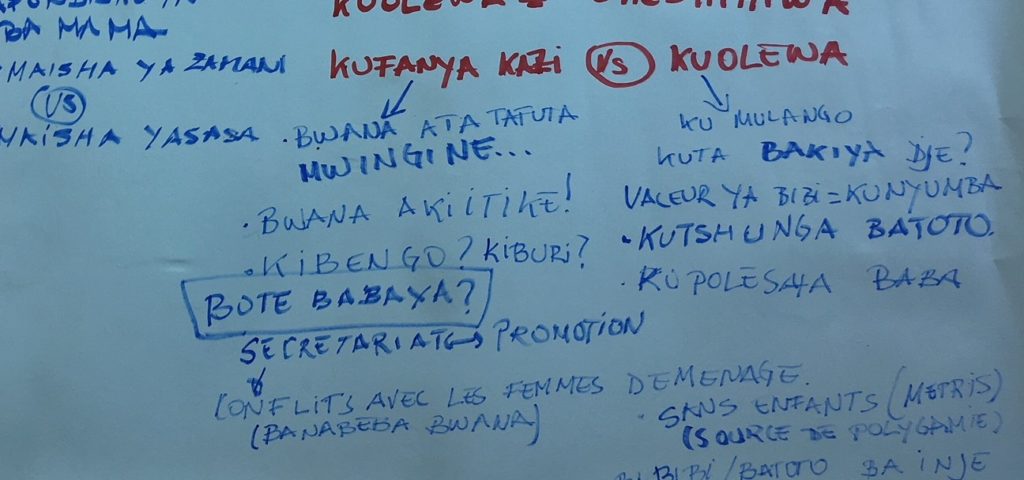 BA MAMA
MAISHA YA ZAMANI
VS
MAISHA YA SASA
KUFANYA KAZI VS KUOLEWA
. BWANA ATA TAFUTA
MWINGINE...
. BWANA AKIITIKE!
. KIBENGO? KIBURI?
BOTE BABAYA?
SECRETARIAT → PROMOTION
CONFLITS AVEC LES FEMMES DEMENAGE.
(BANABEBA BWANA)
KU MULANGO
KUTA BAKIYA DJE?
VALEUR YA BIBI = KUNYUMBA
. KUTSHUNGA BATOTO.
. KUPOLESHA BABA
. SANS ENFANTS (METRIS)
(SOURCE DE POLYGAMIE)
BIBI/BATOTO BA INJE